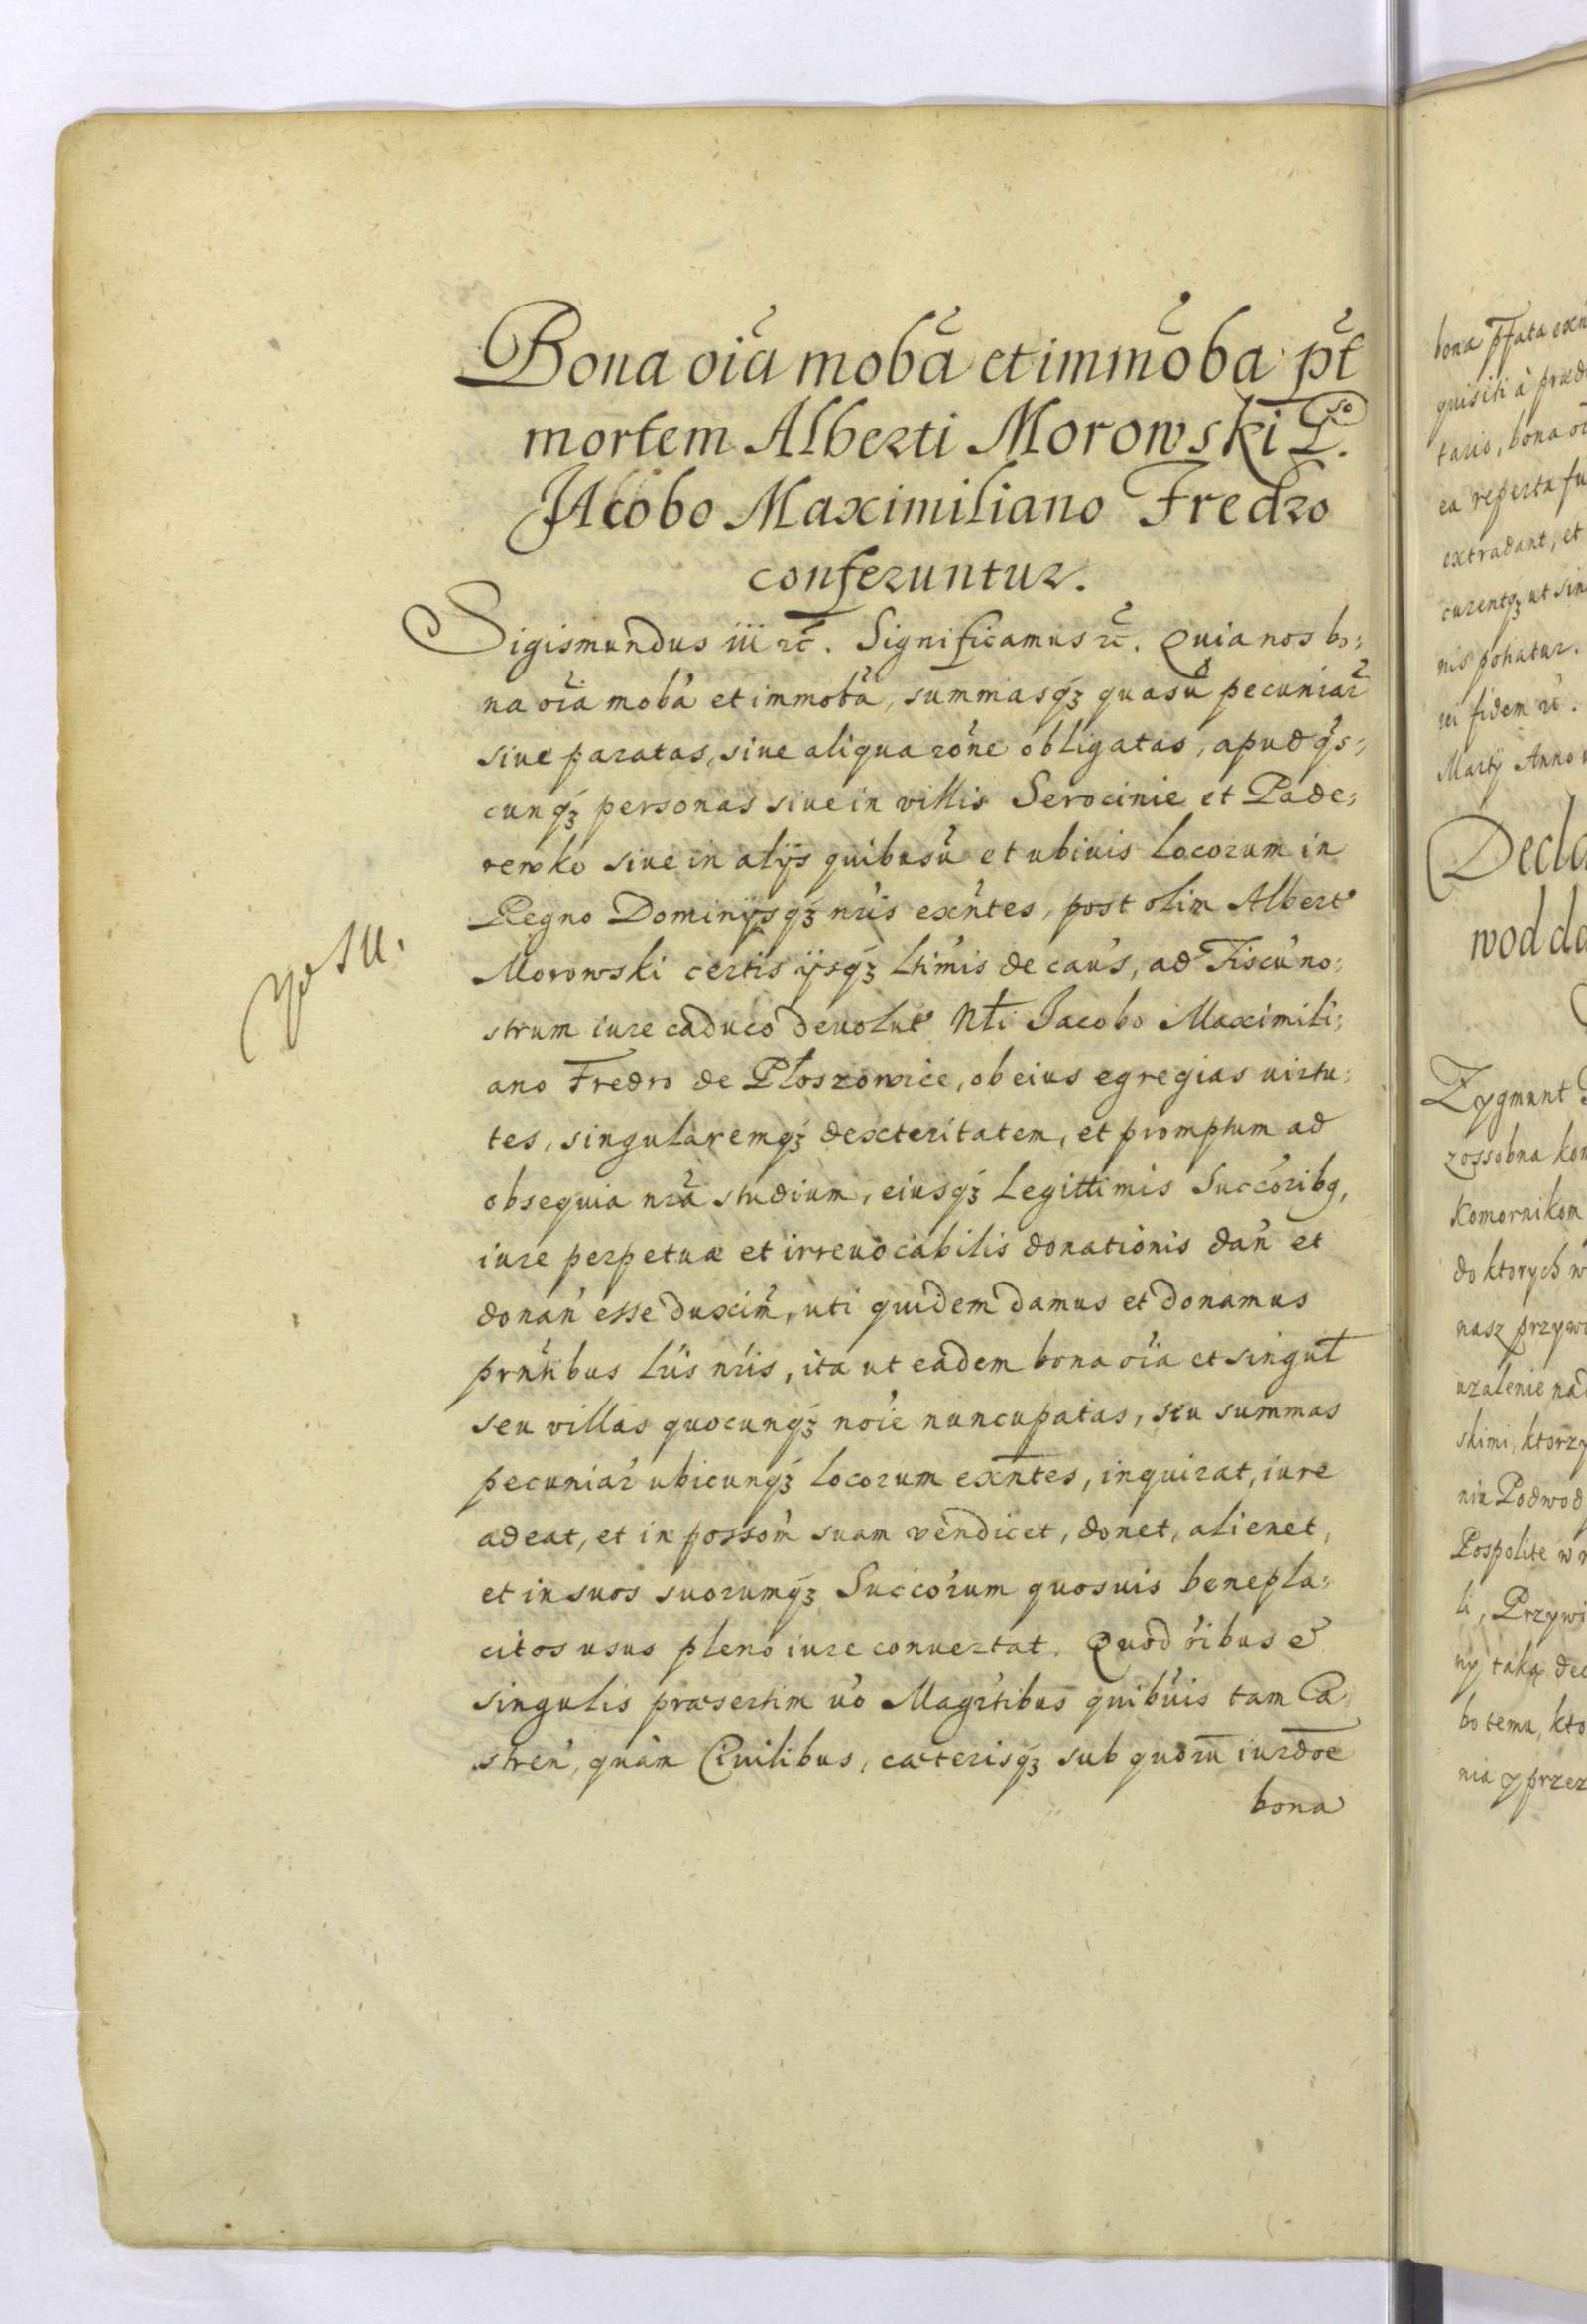 Bona oiã mobã et immõba pt̃
mortem Alberti Morowski G.so
Jacobo Maximiliano Fredro
conferuntur.
Sigismundus iii rc̃. Significamus rc̃. Quia nos bo:
na oĩa mobã et immobã, summasq́ȝ quasũ pecuniar̃
siue paratas, siue aliqua rõne obligatas, apud q̃s:
cunq́ȝ personas siue in villis Serocinie et Pade:
rewko siue in alijs quibusũ et ubiuis locorum in
Regno Dominijsq́ȝ nr̃is exñtes, post olim Albert
Morowski certis ijsq́ȝ ltim̃is de caũs, ad Fiscũ no:
strum iure caduco deuolut Nti Jacobo Maximili:
ano Fredro de Ploszowice, ob eius egregias uirtu:
tes, singularemq́ȝ dexteritatem, et promptum ad
obsequia nr̃a studium, eiusq́ȝ Legittimis Succõribq,
iure perpetuæ et irreuocabilis donationis dañ et
donañ esse duxim̃, uti quidem damus et donamus
prñtibus lr̃is nr̃is, ita ut eadem bona oĩa et singul
seu villas quocunq́ȝ noĩe nuncupatas, seu summas
pecuniar̃ ubicunq́ȝ locorum exñtes, inquirat, iure
adeat, et in possom̃ suam vendicet, donet, alienet,
et in suos suorumq́ȝ Succõrum quosuis benepla:
citos usus pleno iure conuertat. Quod õibus et
singulis præsertim uõ Magr̃tibus quibũis tam Ca
streñ, quàm Ciuilibus, cæterisq́ȝ sub quorũ iurdõe
bona
bona
quisiti à
tario, bona
ea reperta
extradant, et
curentq́ȝ ut
nis potiatur.
rei fidem rc̃.
Martij Anno
Decla
wod
Zygmunt
zossobna
Komornikom
do ktorych w
nasz
uzalenie
skimi, ktorzy
nia Podwod
Pospolite w
li, Przywi
ny taką
bo temu, kto
nia y przez